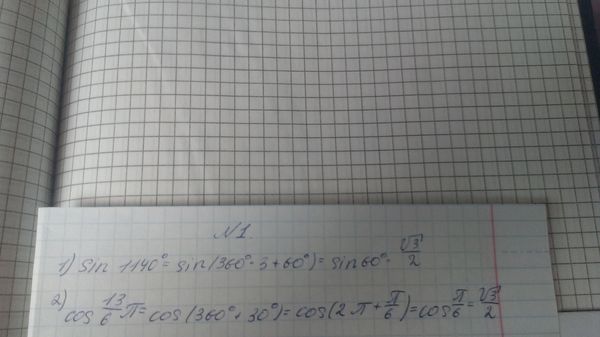 N1.
1) sin 1140° = sin(360° · 3 + 60°) = sin60° · √3/2
2) cos 13/6 π = cos(360° + 30°) = cos(2π + π/6) = cos π/6 = √3/2